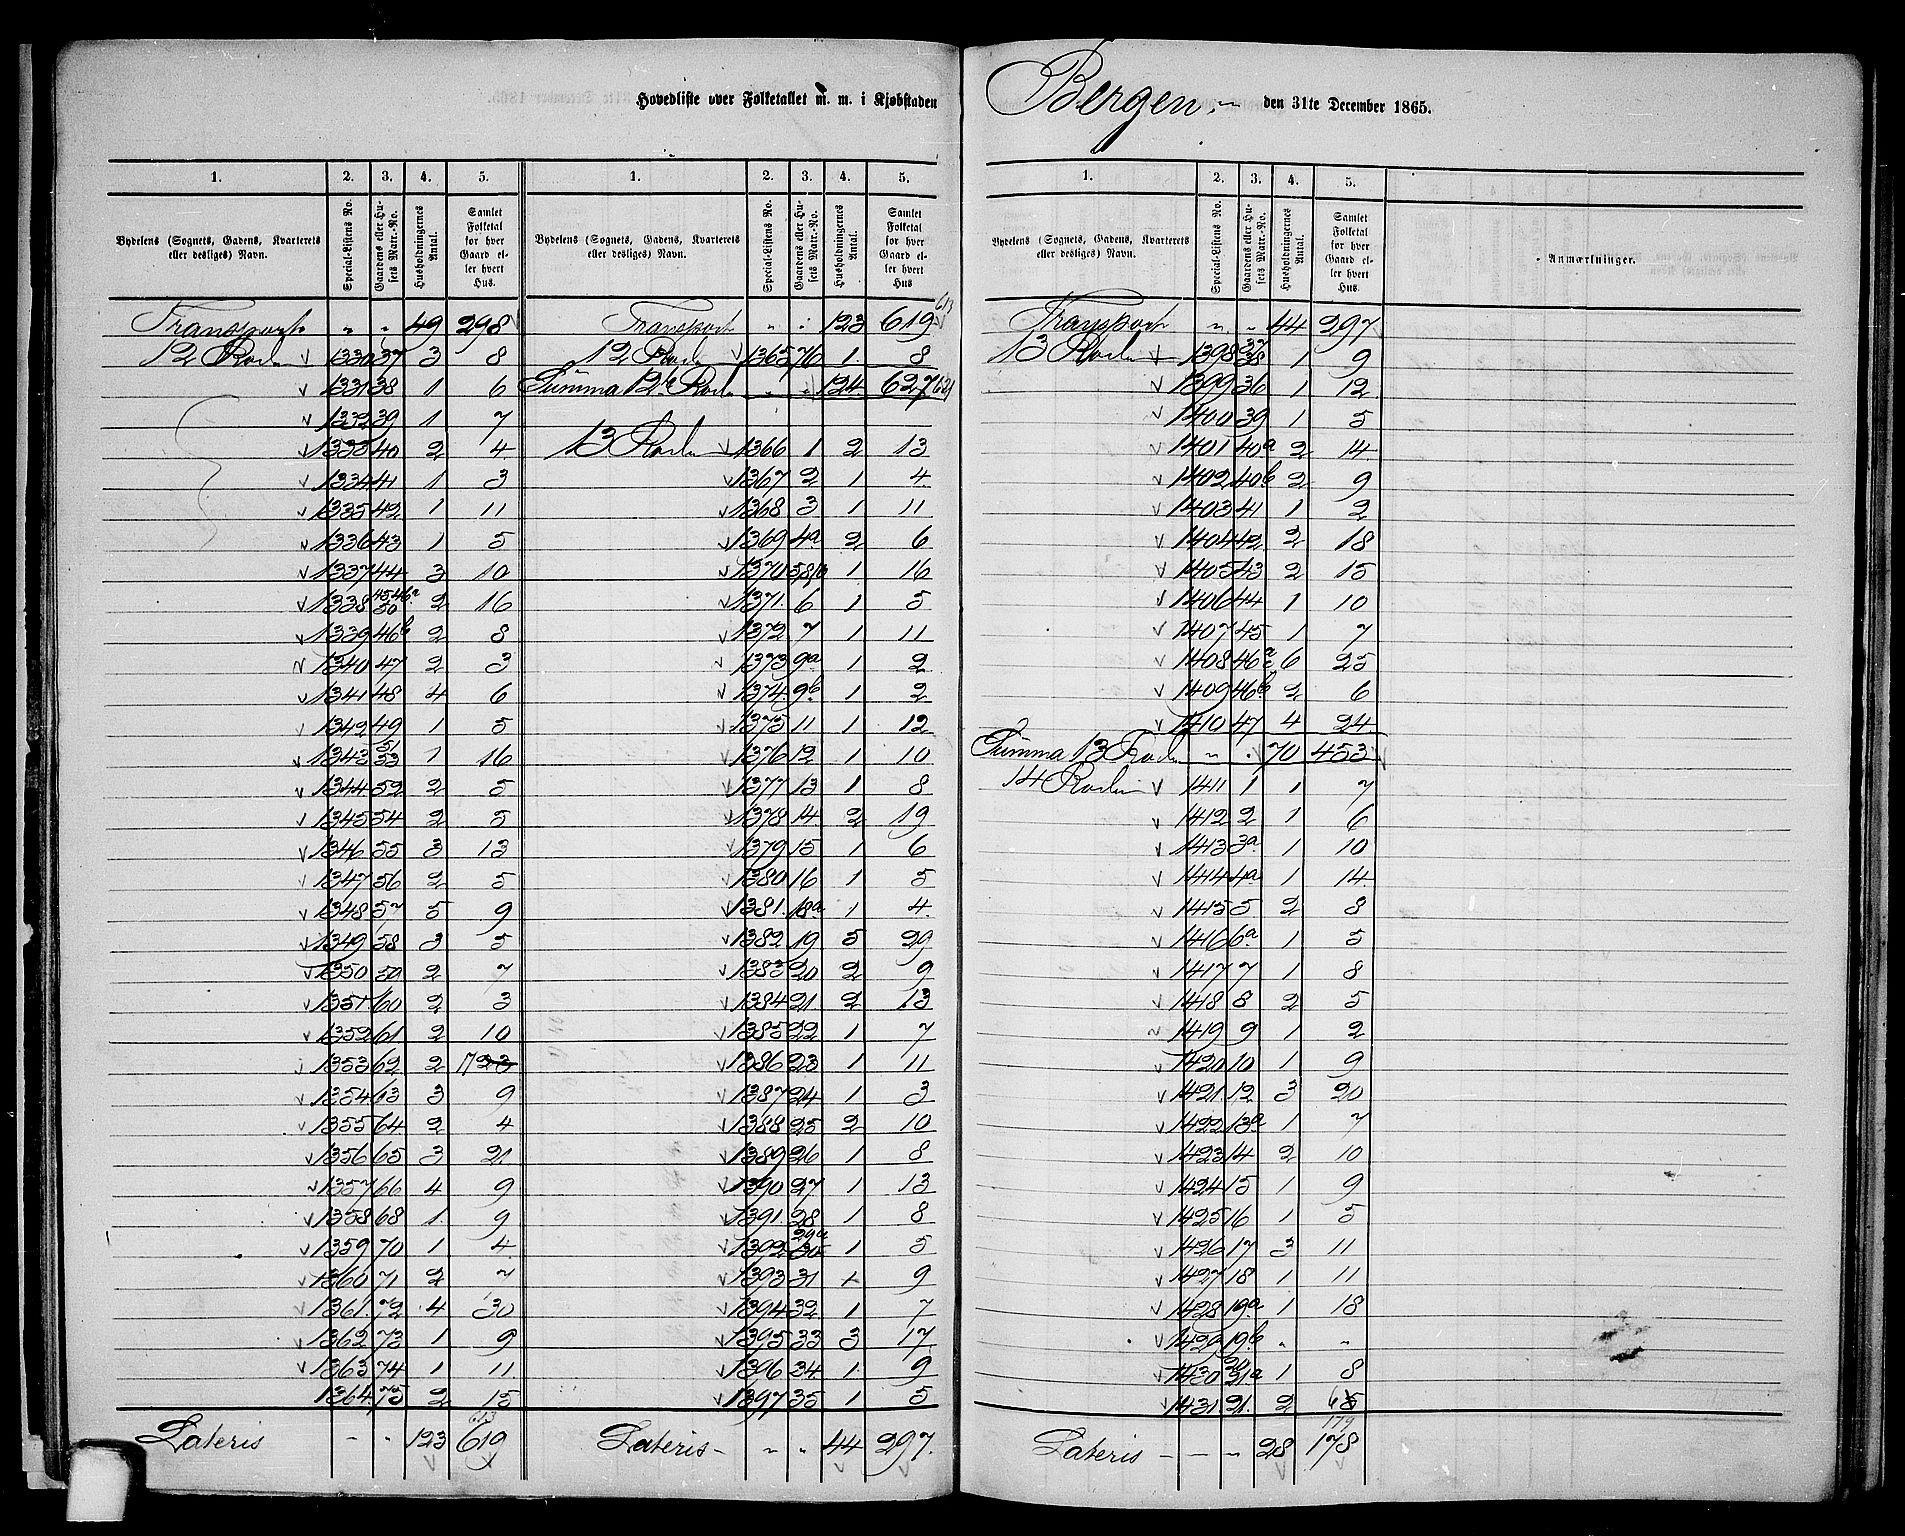 Hovedliste over Folketallet m. m. i Kjøbstaden Bergen. den 31te December 1865.
1. 2. 3. 4. 5.
Bydelens (Sognets, Gadens, Kvarterets eller desliges) Navn. Special-Listens No. Gaardens eller Husets Matr.-No. Husholdningernes Antal. Samlet Folketal for hver Gaard eller hvert Hus.
Transport " " 49 298
12 Rode v 1330 37 3 8
v 1331 38 1 6
v 1332 39 1 7
v 1333 40 2 4
v 1334 41 1 3
v 1335 42 1 11
v 1336 43 1 5
v 1337 44 3 10
v 1338 45 46a 50 2 16
v 1339 46b 2 8
v 1340 47 2 3
v 1341 48 4 6
v 1342 49 1 5
v 1343 51 53 1 16
v 1344 52 2 5
v 1345 54 2 5
v 1346 55 3 13
v 1347 56 2 5
v 1348 57 5 9
v 1349 58 3 5
v 1350 59 2 7
v 1351 60 2 3
v 1352 61 2 10
1353 62 2 17 23
v 1354 63 3 9
v 1355 64 2 4
v 1356 65 3 21
v 1357 66 4 9
v 1358 68 1 9
v 1359 70 1 4
1360 71 2 7
v 1361 72 4 30
v 1362 73 1 9
v 1363 74 1 11
1364 75 2 15
Lateris - " 123 619 613
1. 2. 3. 4. 5.
Bydelens (Sognets, Gadens, Kvarterets eller desliges) Navn. Special-Listens No. Gaardens eller Husets Matr.-No. Husholdningernes Antal. Samlet Folketal for hver Gaard eller hvert Hus
Transport " " 123 619 613
12 Rode v 1365 76 1 8
Summa 12te Rode " " 124 627 621
13 Rode v 1366 1 2 13
v 1367 2 1 4
v 1368 3 1 11
v 1369 4a 2 6
v 1370 5,8,10 1 16
v 1371 6 1 5
v 1372 7 1 11
v 1373 9a 1 2
v 1374 9b 1 2
v 1375 11 1 12
v 1376 12 1 10
v 1377 13 1 8
v 1378 14 2 19
v 1379 15 1 6
v 1380 16 1 5
v 1381 18a 1 4
v 1382 19 5 29
v 1383 20 2 9
v 1384 21 2 13
v 1385 22 1 7
v 1386 23 1 11
v 1387 24 1 3
v 1388 25 2 10
v 1389 26 1 8
v 1390 27 1 13
v 1391 28 1 8
v 1392 29a 30 1 5
v 1393 31 1 9
v 1394 32 1 7
v 1395 33 3 17
v 1396 34 1 9
v 1397 35 1 5
Lateris - " " 44 297
1. 2. 3. 4. 5.
Bydelens (Sognets, Gadens, Kvarterets eller desliges) Navn. Special-Listens No. Gaardens eller Husets Matr.-No. Husholdningernes Antal. Samlet Folketal for hver Gaard eller hvert Hus. Anmærkninger.
Transport " " 44 297
13 Rode v 1398 37 38 1 9
1399 36 1 12
v 1400 39 1 5
v 1401 40a 2 14
v 1402 40b 2 9
v 1403 41 1 2
v 1404 42 2 18
v 1405 43 2 15
v 1406 44 1 10
v 1407 45 1 7
v 1408 46a c 6 25
v 1409 46b 2 6
v 1410 47 4 24
Summa 13 Rode " " 70 453
14 Rode v 1411 1 1 7
v 1412 2 1 6
v 1413 3a 1 10
v 1414 4a 1 14
v 1415 5 2 8
v 1416 6a 1 5
v 1417 7 1 8
v 1418 8 2 5
1419 9 1 2
v 1420 10 1 9
v 1421 12 3 20
v 1422 13a 1 7
v 1423 14 2 10
v 1424 15 1 9
v 1425 16 1 5
v 1426 17 3 11
v 1427 18 1 11
v 1428 19a 1 18
v 1429 19b " "
v 1430 20 21a 1 8
v 1431 21 2 6
Lateris - - " 28 178 179